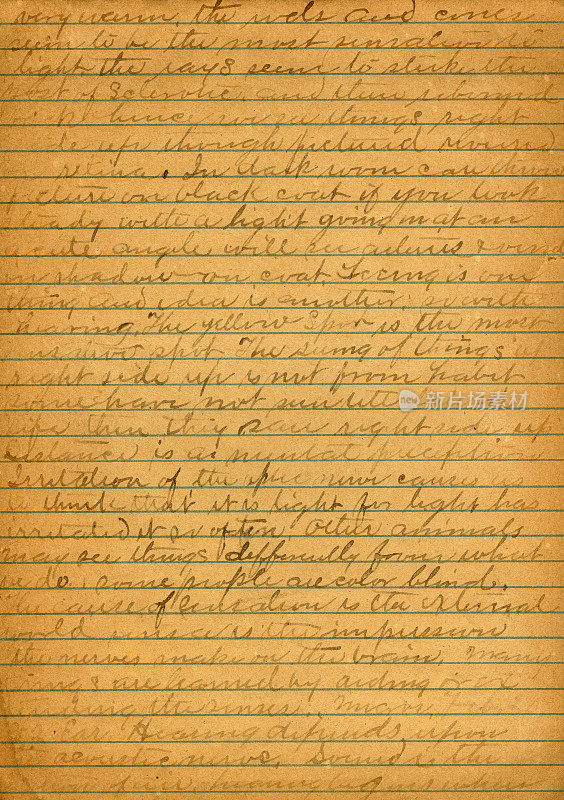 very warm, the rods and cones
seem to be the most sensative to
light the rays seem to strike the
post of Sclerotic, and then rebound
hence we see things right
side up through pictured round
retina. In dark room can throw
picture on black coat if you look
steady with a light going in at an
acute angle will see
in shadow on coat. Seeing is one
thing and idea is another; so with
hearing. The yellow Spot is the most
sensitive spot The seeing of things
right side up is not from habit
some have not seen
life then they saw right side up
distance is a mental perception
Irritation of the optic nerve causes us
to think that it is light for light has
irritated it so often. Other animals
may see things differently from what
we do, some people are color blind.
The cause of Sensation is the external
world, sense is the impression
the nerves make on the brain. Many
things are learned by
the senses.
Ear. Hearing depends upon
acoustic nerves. Sound is the
new 新图视线网